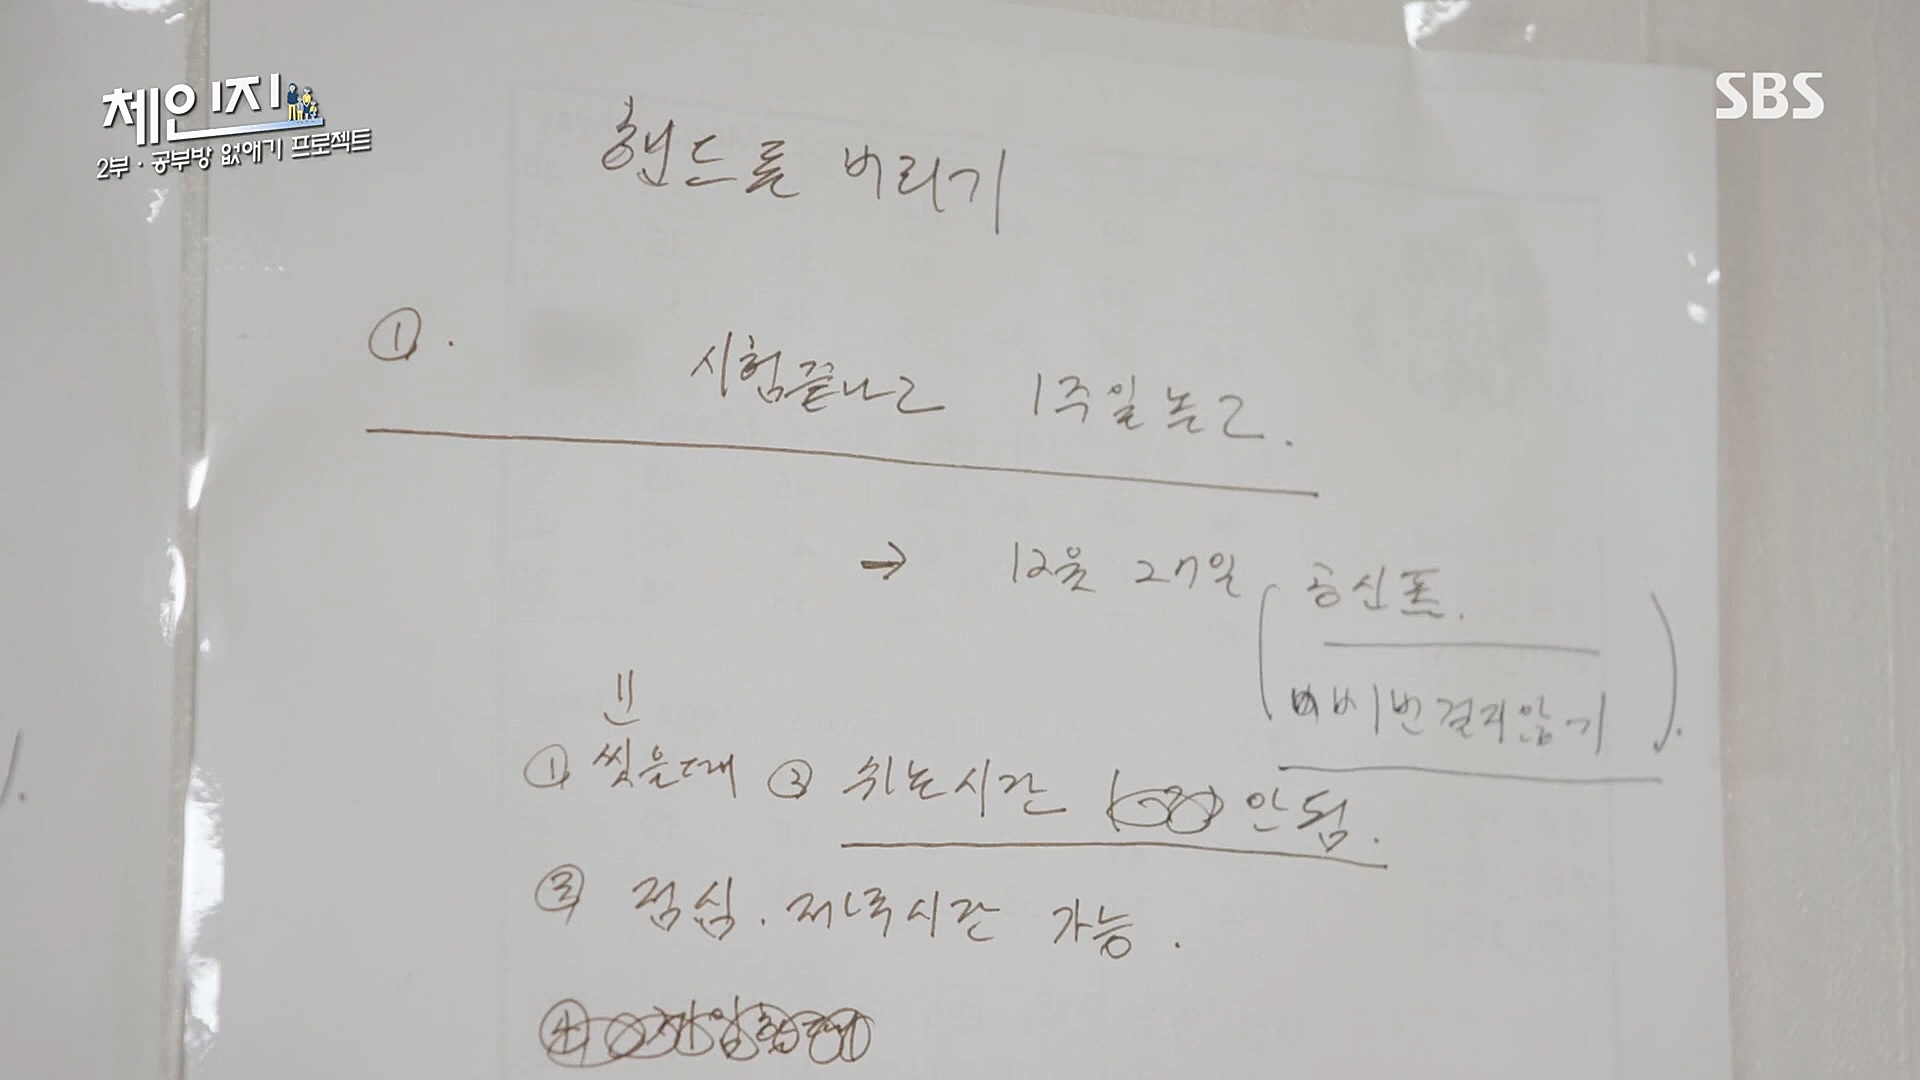 체인지
2부 · 공부방 없애기 프로젝트
SBS
핸드폰 버리기
①. 시험끝나고 1주일놀고.
→ 12월 27일 (공신폰.
비번걸지않기).
① 씻을때 ② 쉬는시간 안됨.
③ 점심. 저녁시간 가능.
④